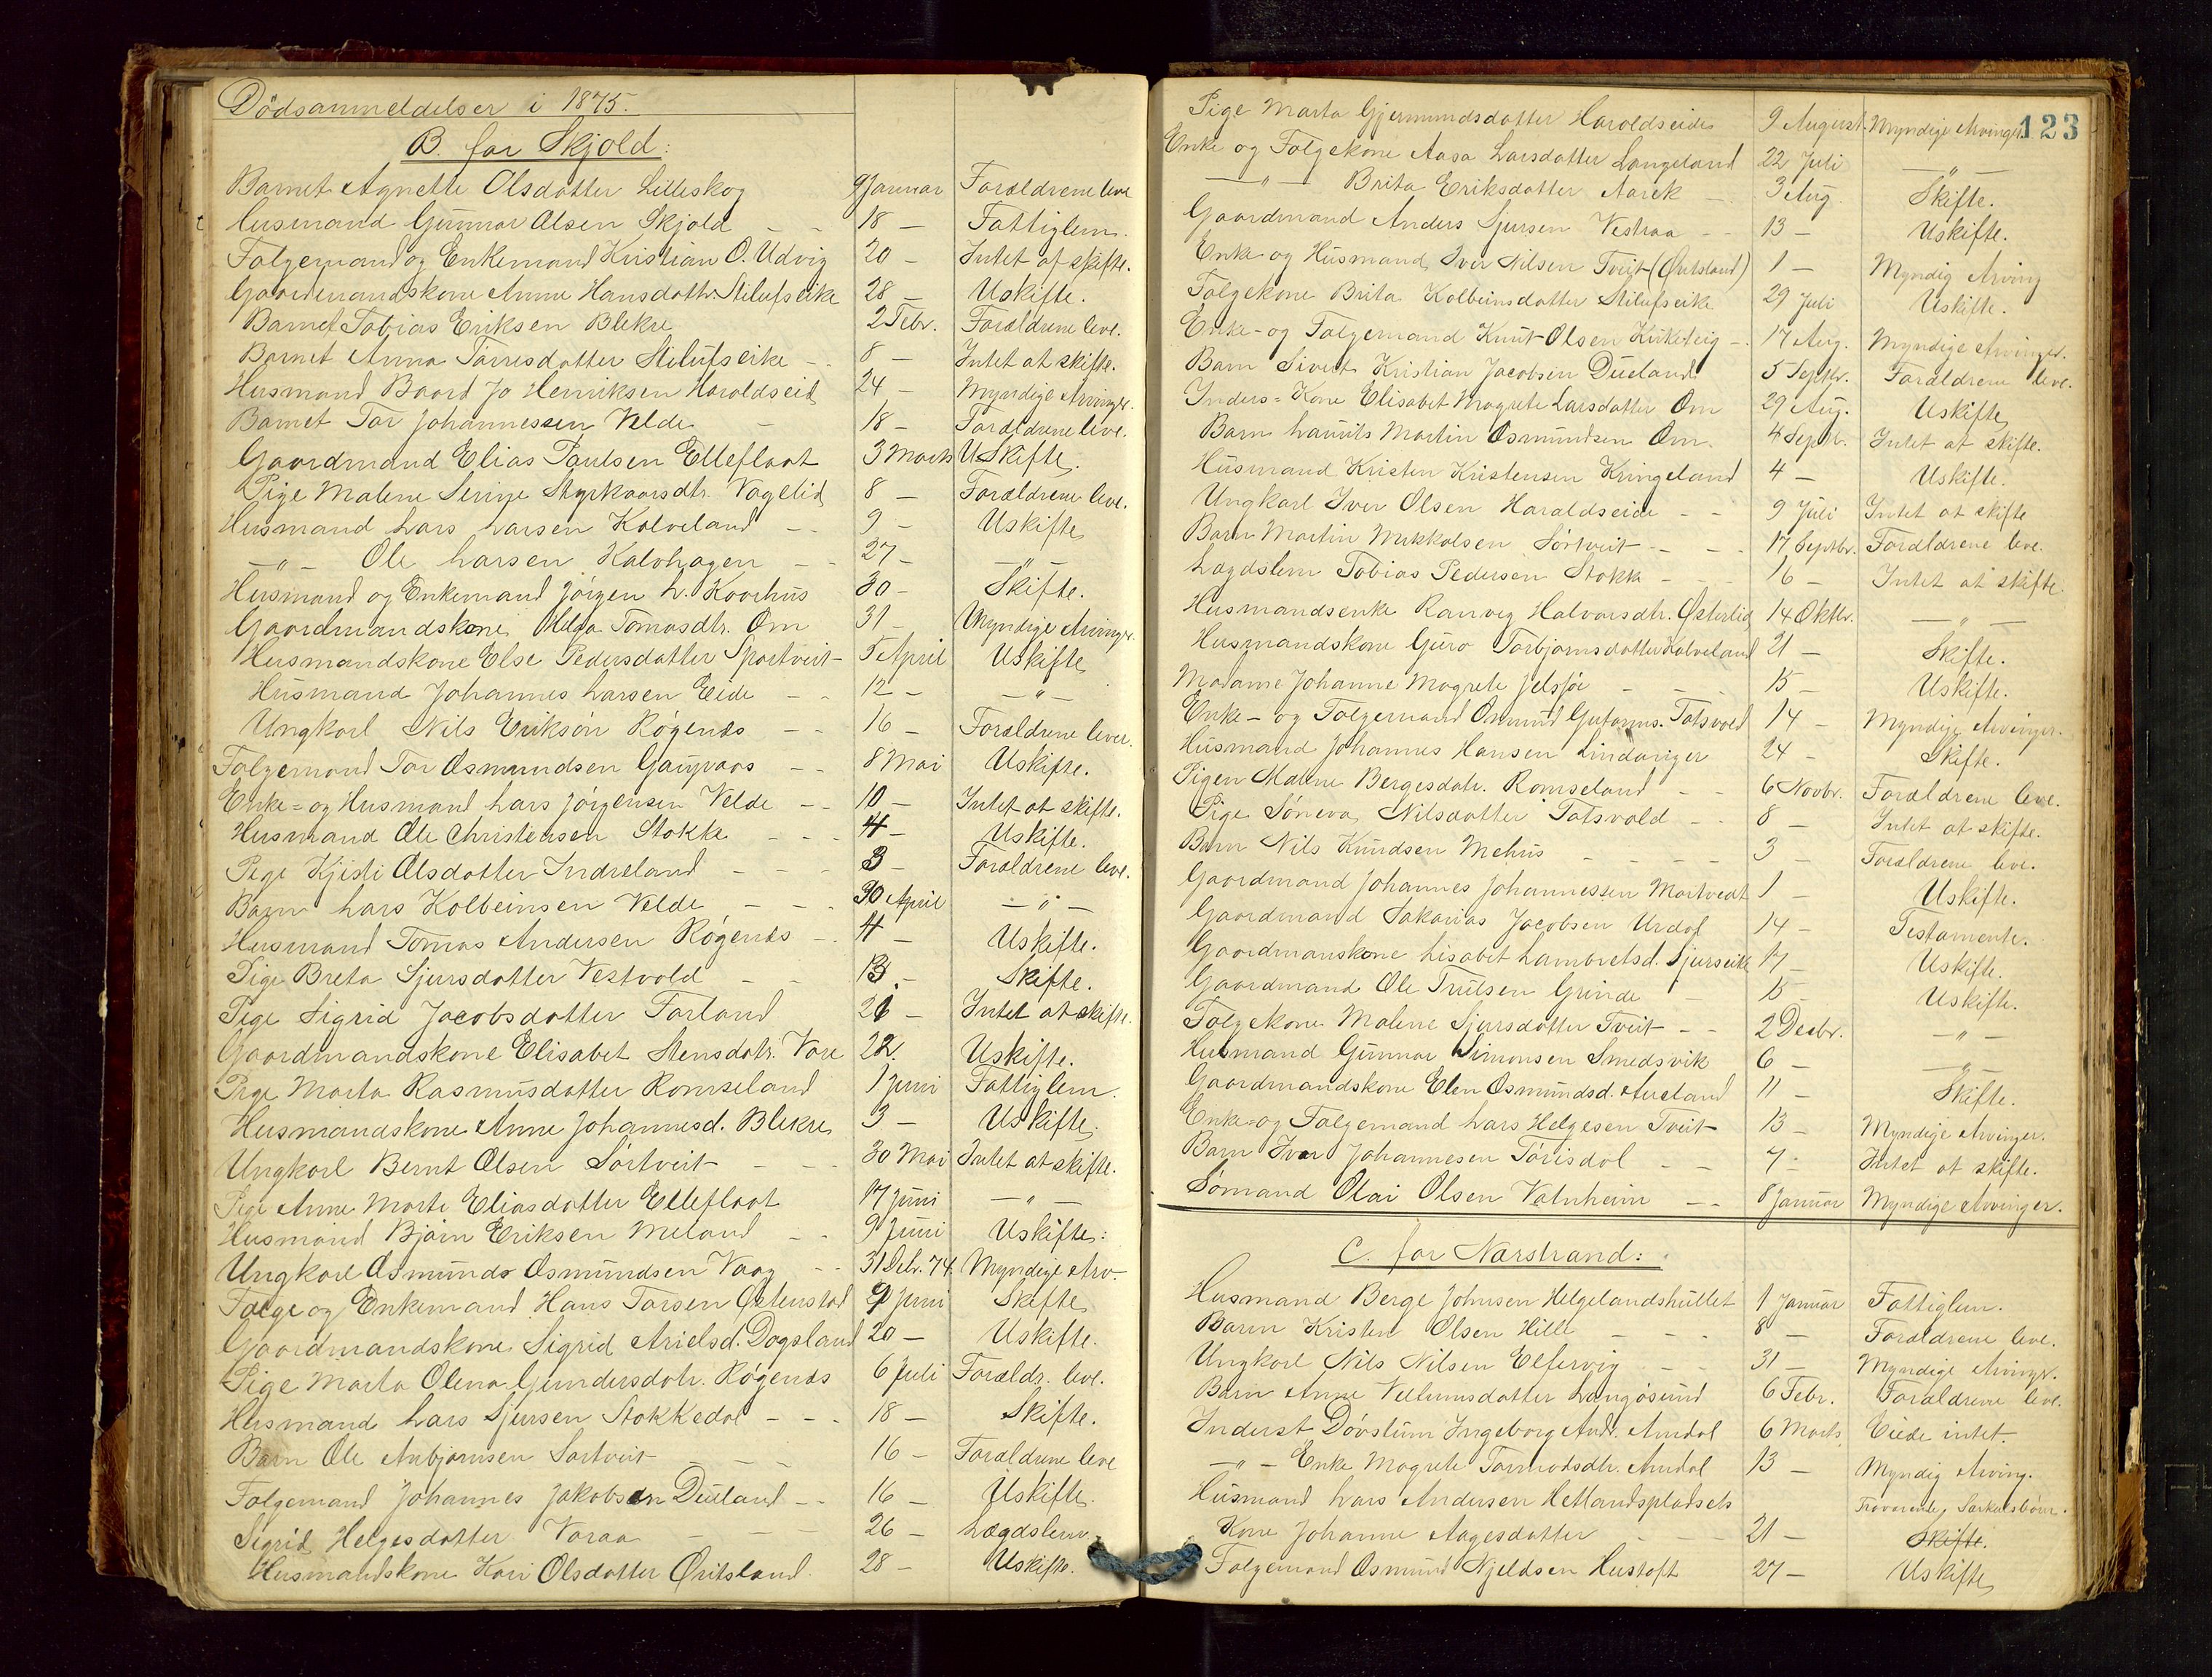 Dödsanmeldelser i 1875.
B. for Skjold:
Barnet Agnethe Olsdatter Lilleskog 9 Januar Forældrene leve
Husmand Gunnar Olsen Skjold - - 18 - Fattiglem.
Folgemand og Enkemand Kristian O. Udvig 20 - Intet at skifte.
Gaardmandskone Anne Hansdatter Stilufseike 28 - Uskifte.
Barnet Tobias Eriksen Blekre 2 Febr. Forældrene leve.
Barnet Anna Torresdatter Stilufseike - 8 - Intet at skifte.
Husmand Baard Jo Henriksen Haroldseid 24 - Myndige Arvinger.
Barnet Tor Johannessen Velde - 18 - Forældrene leve.
Gaardmand Elias Paulsen Ellefloot 3 Marts Uskifte.
Pige Malene Serine Styrkaarsdtr. Vagelid 8 - Forældrene leve.
Husmand Lars Larsen Kalveland - - 9 - Uskifte
- " - Ole Larsen Kalvhagen - - 27 - - " -
Husmand og Enkemand Jörgen L. Kaarhus 30 - Skifte.
Gaardmandskone Helga Tomasdtr. Om 31 - Myndige Arvinger.
Husmandskone Else Pedersdatter Sportveit 5 April Uskifte
Husmand Johannes Larsen Eide - - 12 - - " -
Ungkarl Nils Eriksön Røgenes - - 16 - Forældrene lever.
Folgemand Tor Osmundsen Gangvaas - - 8 Mai Uskifte.
Enke- og Husmand Lars Jörgensen Velde - - 10 - Intet at skifte.
Husmand Ole Christensen Stokke - - - 4 - Uskifte.
Pige Kjisti Olsdatter Indreland - - - 3 - Forældrene leve.
Barn Lars Kolbeinsen Velde - - - 30 April - " -
Husmand Tomas Andersen Røgenes - - 4 - Uskifte.
Pige Breta Sjursdatter Vestvold - - 13. - Skifte.
Pige Sigrid Jacobsdatter Forland 21 - Intet at skifte.
Gaardmandskone Elisabet Stensdatr. Vore 22. Uskifte.
Pige Marta Rasmusdatter Romseland 1 Juni Fattiglem.
Husmandskone Anne Johannesd. Blekre 3 - Uskifte.
Ungkarl Bernt Olsen Sörtveit - - - 30 Mai Intet at skifte.
Pige Anne Marte Eliasdatter Ellefloot 17 Juni - " -
Husmand Bjørn Eriksen Meland - - 9 Juni Uskifte:
Ungkarl Osmund Osmundsen Vaag - - 31 Debr. 74. Myndige Arv.
Folge og Enkemand Hans Torsen Østenstad 9 Juni Skifte
Gaardmandskone Sigrid Arielsd. Dagsland 20 - Uskifte.
Pige Marta Olena Gundersdatr. Røgenes 6 Juli Forældr. leve.
Husmand Lars Sjursen Stokkedal - - - 18 - Skifte.
Barn Ole Anbjørnsen Sortveit - - 16 - Forældrene leve
Folgemand Johannes Jakobsen Dueland - - 16 - Uskifte.
Sigrid Helgesdatter Voraa - - - 26 - Lægdslem.
Husmandskone Kari Olsdatter Øvitsland 28 - Uskifte.
123
Pige Marta Gjermundsdatter Haroldseide 9 August. Myndige Arvinger.
Enke og Folgekone Aasa Larsdatter Langeland 22 Juli - " -
- " - Brita Eriksdatter Aarek - 3 Aug. Skifte.
Gaardmand Anders Sjursen Vestraa - - 13 - Uskifte.
Enke- og Husmand Iver Nilsen Tveit (Øvitsland) 1 - Myndig Arving
Folgekone Brita Kolbeinsdatter Stilufseike 29 Juli Uskifte.
Enke- og Folgemand Knut Olsen Kirketeig - 17 Aug. Myndige Arvinger.
Barn Sivert Kristian Jacobsen Dueland 5 Septbr. Forældrene leve.
Inders- Kone Elisabet Magrete Larsdatter Om 29 Aug. Uskifte
Barn Laurits Martin Osmundsen Om. 4 Septbr. Intet at skifte.
Husmand Kristen Kristensen Kringeland 4 - Uskifte.
Ungkarl Iver Olsen Haraldseide - - 9 Juli Intet at skifte
Barn Martin Mikkalsen Sörtveit - - - 17 Septbr. Forældrene leve.
Lægdslem Tobias Pedersen Stokke - - - 16 - Intet at skifte.
Husmandsenke Ranveg Halvorsdtr. Østerlid 14 Oktbr. - " -
Husmandskone Guro Torbjørnsdatter Kalveland 21 - Skifte.
Madame Johanne Magrete Jelsjøe - - - 15 - Uskifte.
Enke- og Folgemand Osmund Gutorms. Totsvold 14 - Myndige Arvinger.
Husmand Johannes Hansen Lindanger 24 - Skifte.
Pigen Malene Bergesdatr. Romseland - - 6 Novbr. Forældrene leve.
Pige Söneva Nilsdatter Totsvold - - 8 - Intet at skifte.
Barn Nils Knudsen Mehus - - - - 3 - Forældrene leve.
Gaardmand Johannes Johannessen Mortvedt 1 - Uskifte.
Gaardmand Sakarias Jacobsen Urdal 14 - Testamente.
Gaardmanskone Lisabet Lambretsd. Sjurseike 17 - Uskifte.
Gaardmand Ole Trulsen Grinde - 15 - Uskifte.
Folgekone Malene Sjursdatter Tveit - - 2 Decbr. - " -
Husmand Gunnar Simonsen Smedsvik 6 - - " -
Gaardmandskone Elen Osmundsd. Aueland 11 - Skifte.
Enke- og Folgemand Lars Helgesen Tveit 13 - Myndige Arvinger.
Barn Ivar Johannesen Törisdal - - 7 - Intet at skifte.
Sømand Olai Olsen Vatnheim - - 8 Januar Myndige Arvinger.
C. for Nærstrand:
Husmand Berge Johnsen Helgelandshullet 1 Januar Fattiglem.
Barn Kristen Olsen Hille - - - - 8 - Forældrene leve.
Ungkarl Nils Nilsen Elfervig - - 31 - Myndige Arvinger.
Barn Anne Vellumsdatter Langøsund 6 Febr. Forældrene leve.
Inderst Døvstum Ingeborg Andr. Amdal 6 Marts Eiede intet.
- " - Enke Magrete Tormodsdtr. Amdal 13 - Myndig Arving.
Husmand Lars Andersen Hetlandspladsets
Kone Johanne Aagesdatter - 21 - Skifte.
Folgemand Osmund Kjeldsen Hustoft 27 - Uskifte